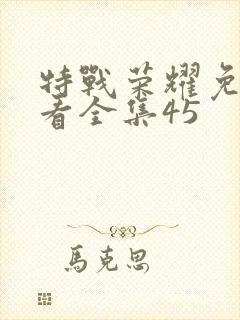 特戰荣耀免
看全集45
馬克思